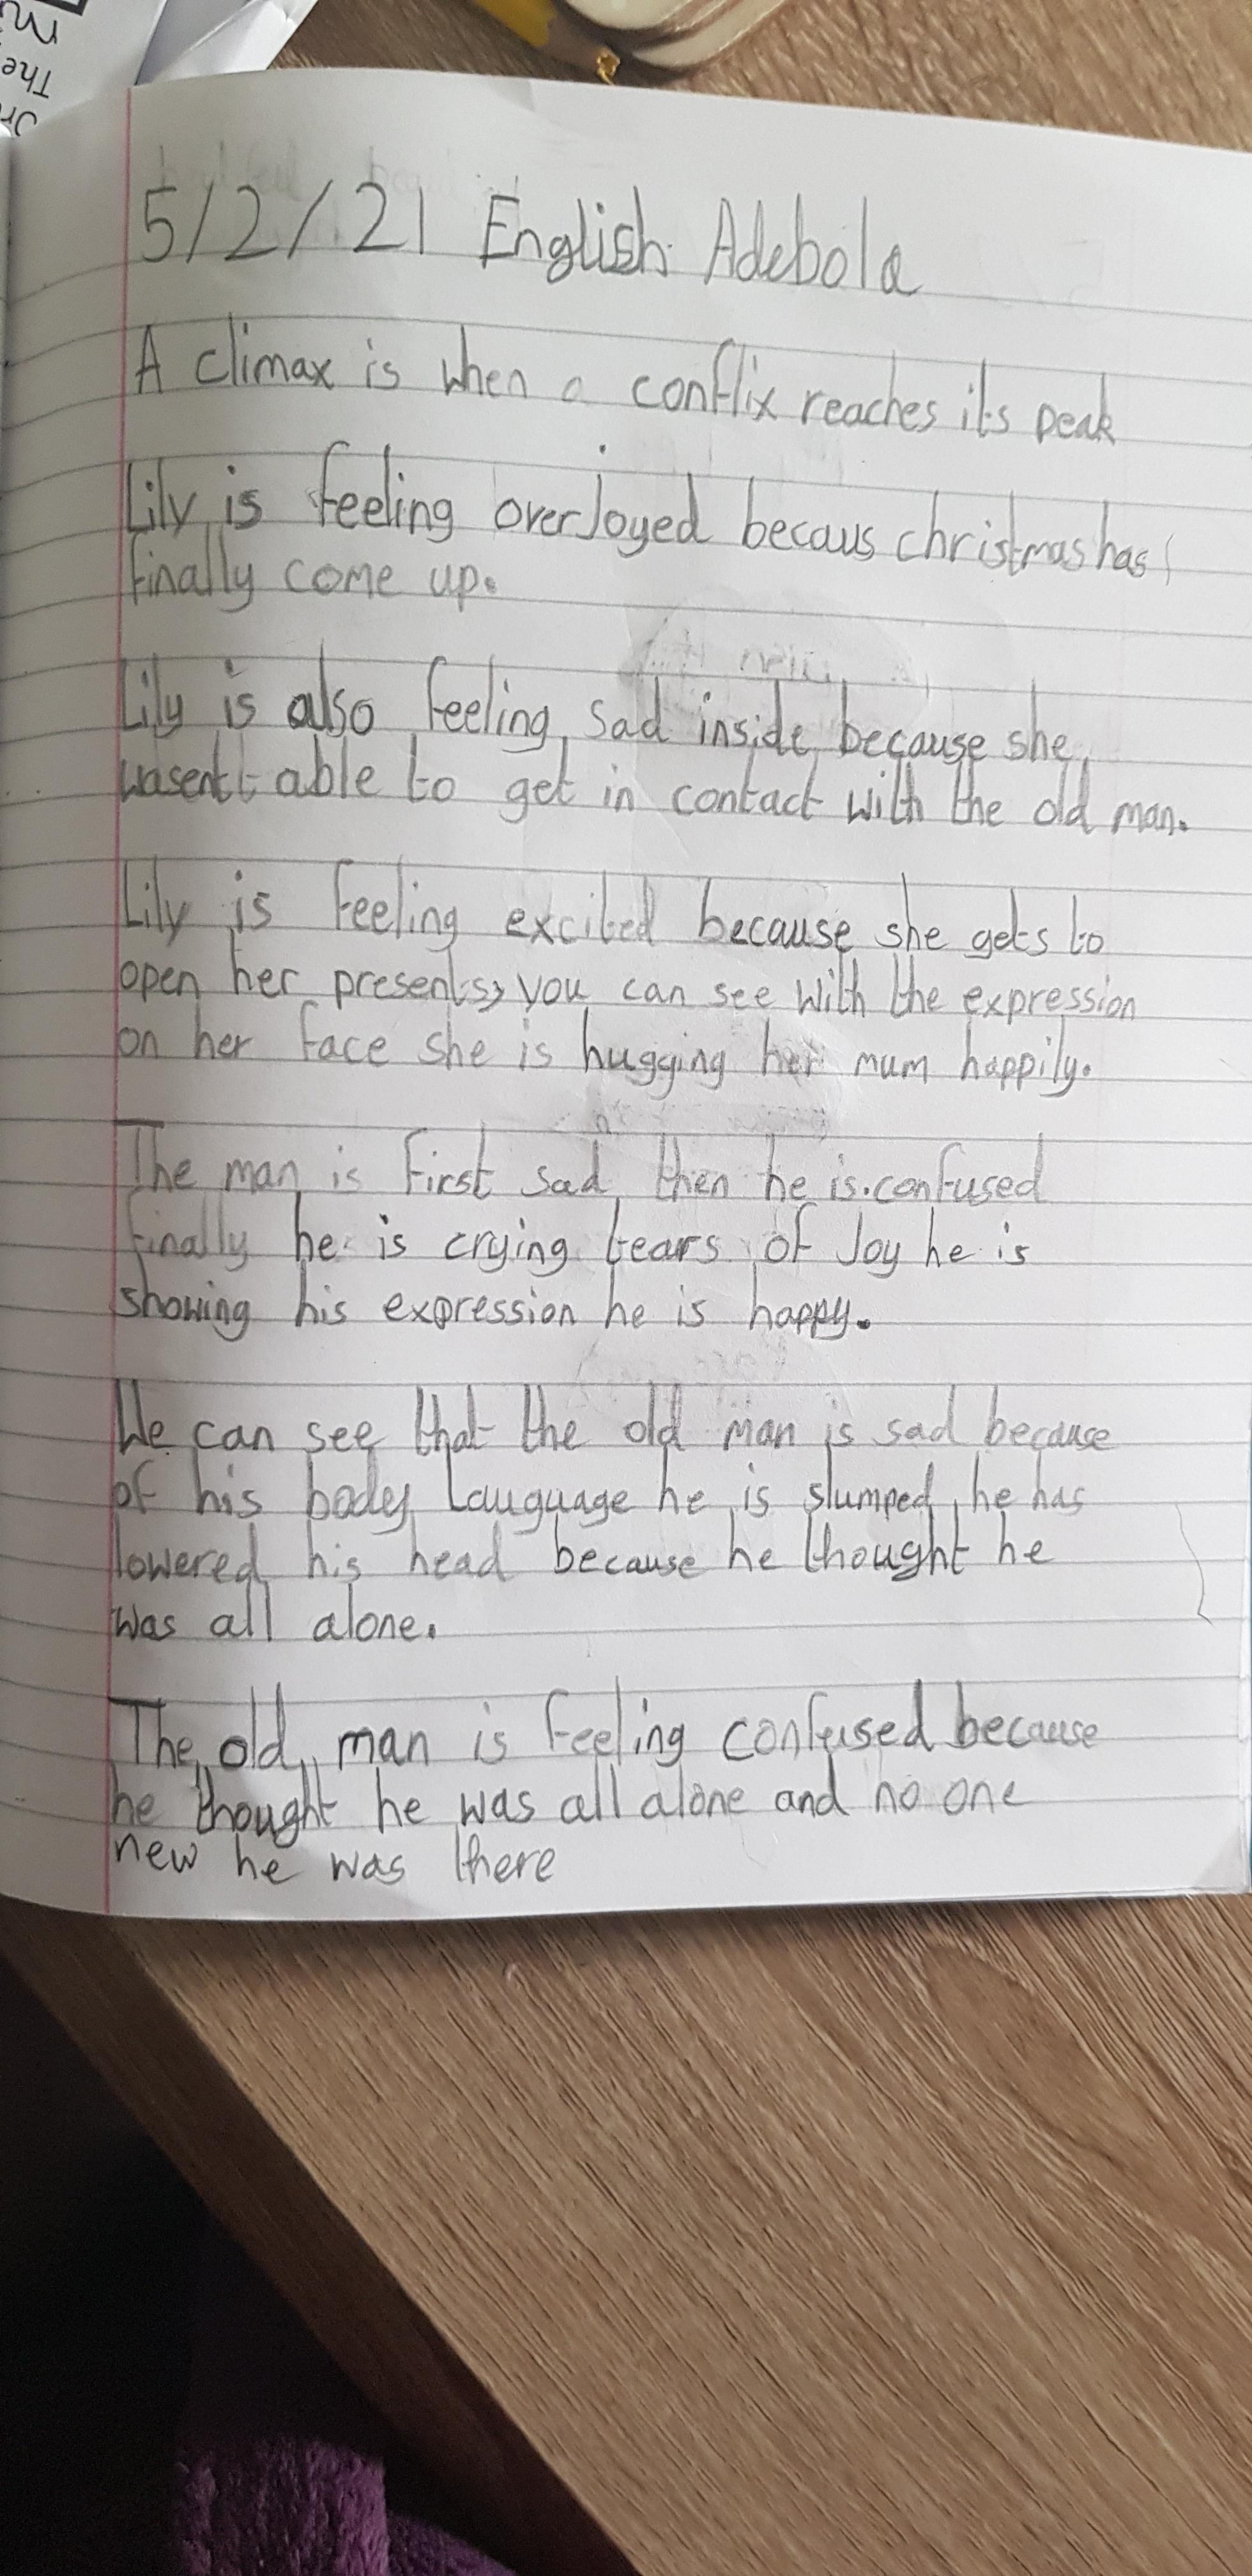 The
5/2/21 English Adebola
A climax is when a conflix reaches its peak
Lily is feeling overJoyed becaus christmas has
finally come up.
Lily is also feeling sad inside because she
wasent able to get in contact with the old man.
Lily is feeling excited because she gets to
open her presents, you can see with the expression
on her face she is hugging her mum happily.
The man is first sad, then he is confused
finally he is crying tears of Joy he is
showing his expression he is happy.
We can see that the old man is sad because
of his body Lauguage he is slumped, he has
lowered his head because he thought he
was all alone.
The old man is feeling confused because
he thought he was all alone and no one
new he was there